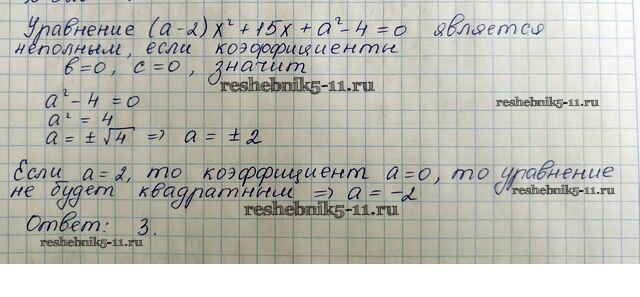 Уравнение (a-2)x² + 15x + a² - 4 = 0 является
неполным, если коэффициенты
в=0, с=0, значит
reshebnik5-11.ru
a² - 4 = 0
reshebnik5-11.ru
a² = 4
a = ± √4 => a = ± 2
Если a=2, то коэффициент a=0, то уравнение
reshebnik5-11.ru
не будет квадратным => a = -2
reshebnik5-11.ru
Ответ: 3.
reshebnik5-11.ru